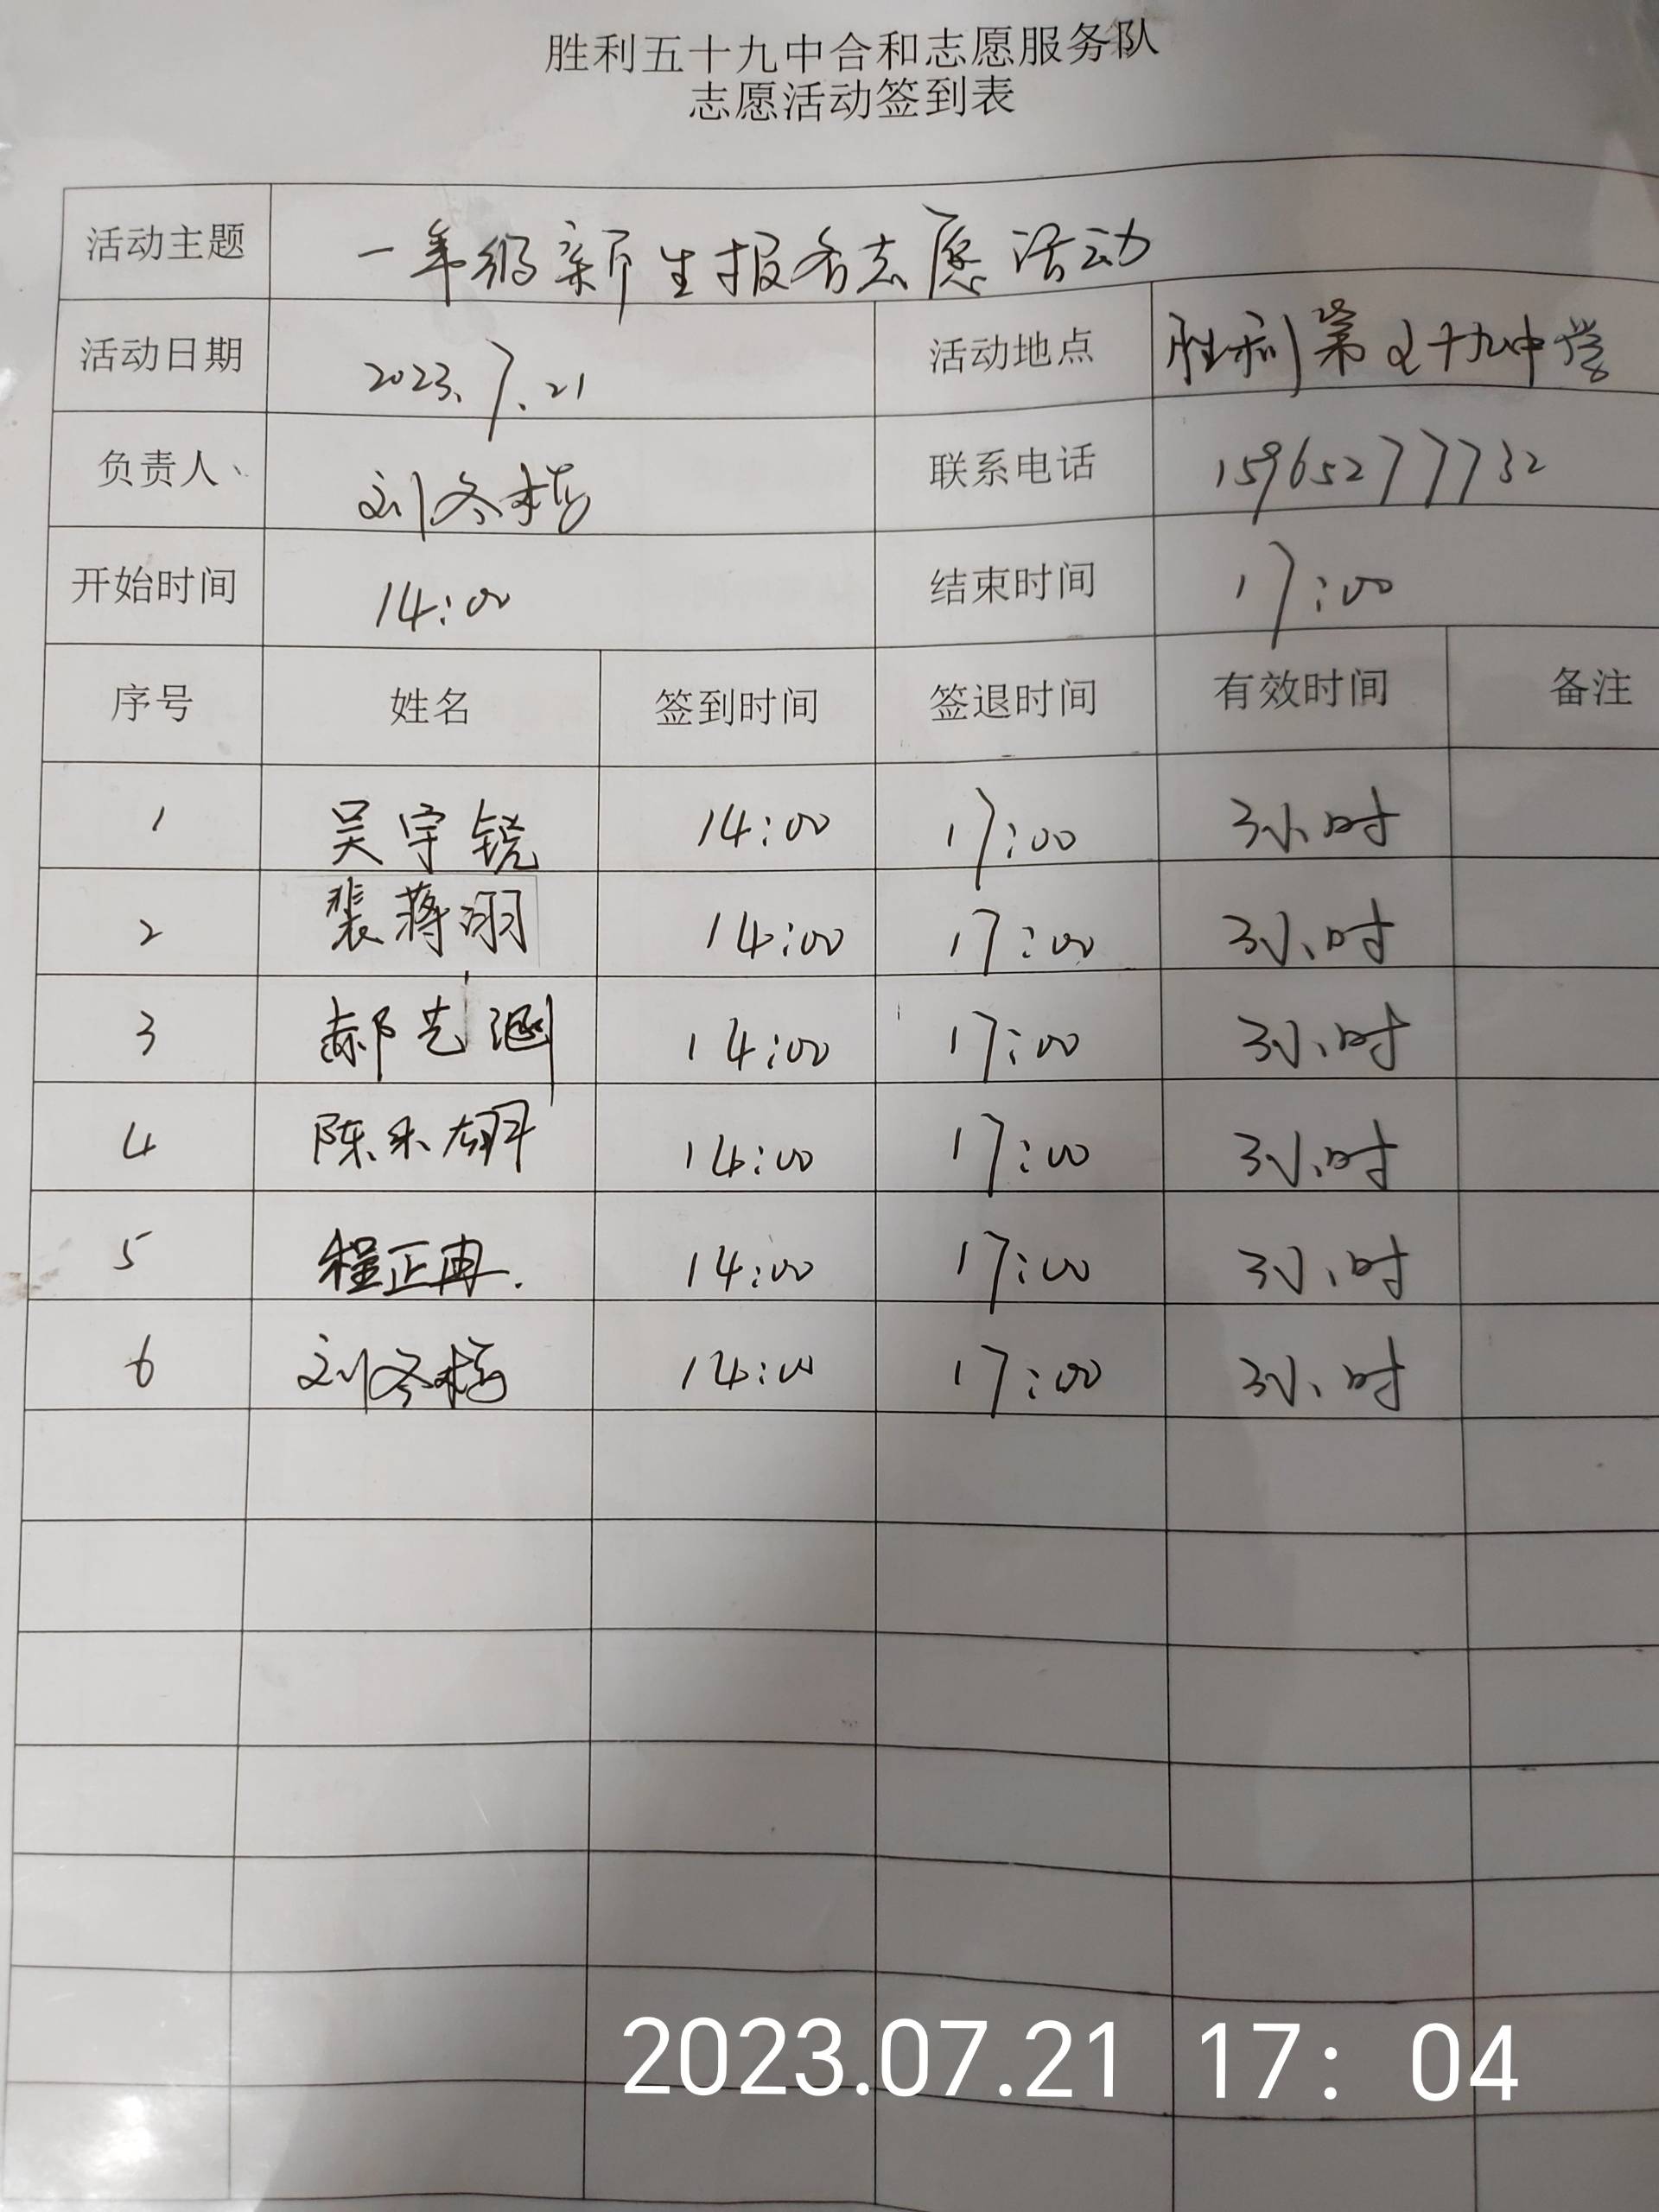 胜利五十九中合和志愿服务队
志愿活动签到表
活动主题 一年级新生报名志愿活动
活动日期 2023.7.21 活动地点 胜利第五十九中学
负责人 刘冬梅 联系电话 15965277732
开始时间 14:00 结束时间 17:00
序号 姓名 签到时间 签退时间 有效时间 备注
1 吴宇锐 14:00 17:00 3小时
2 裴蒋翊 14:00 17:00 3小时
3 郝艺涵 14:00 17:00 3小时
4 陈禾 14:00 17:00 3小时
5 程正冉. 14:00 17:00 3小时
6 刘冬梅 14:00 17:00 3小时
2023.07.21 17:04